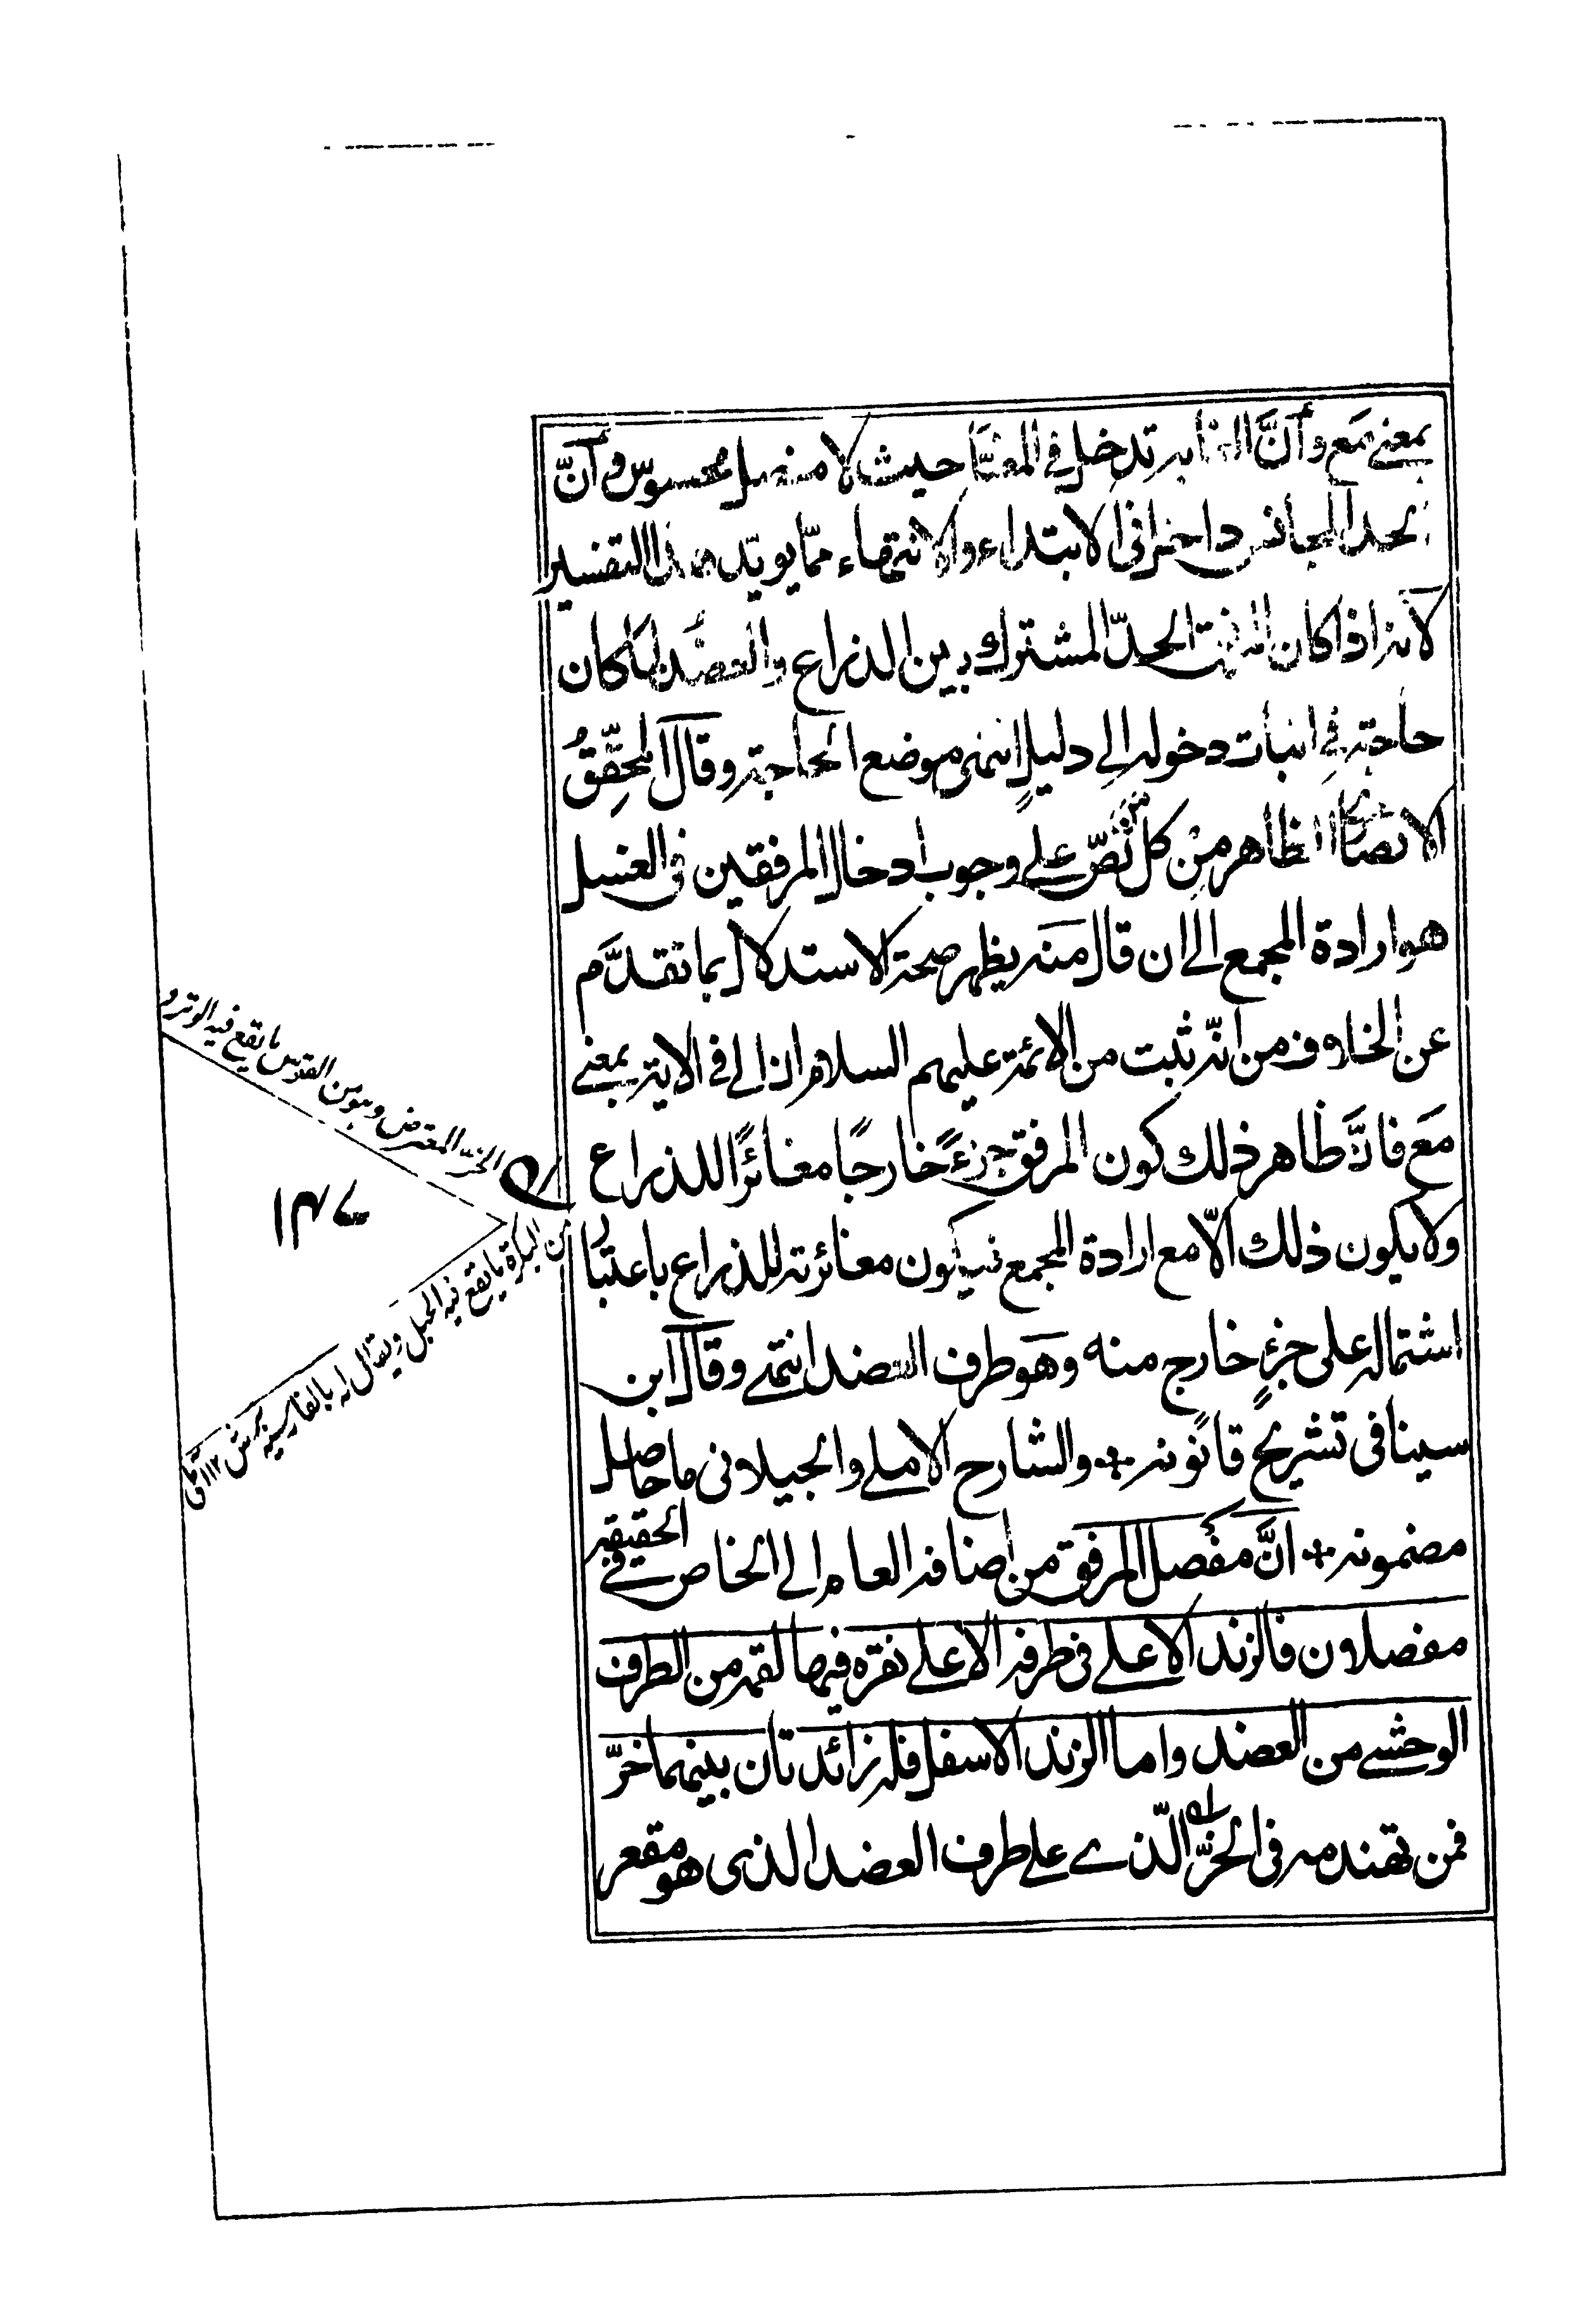 بمعنى مَع وأنَّ الغاية تدخل في المغيّا حيث لا مفصل محسوس وأنّ
الحد المجانس داخل في الابتداء والانتهاء ممّا يويّد هذا التفسير
لأنه اذا كان المرفق الحدّ المشترك بين الذراع والعضد لما كان
حاجة في اثبات دخوله إلى دليلٍ انتهى موضع الحاجة وقال المحقِّقُ
الانصاري الظاهر من كل من نصّ على وجوب ادخال المرفقين في الغسل
هو ارادة المجمع الى ان قال منه يظهر صحة الاستدلال بما تقدَّم
عن الخلاف من انّه ثبت من الائمة عليهم السلام ان الى في الاية بمعنى
مَع فانَّ ظاهر ذلك كون المرفق جزءً خارجًا مغائرًا للذراع
ولا يكون ذلك الّا مع ارادة المجمع فيكون مغائرته للذراع باعتبار
اشتماله على جزءٍ خارج منه وهو طرف العضد انتهى وقال ابن
سينا في تشريح قانونه والشارح الاملي والجيلاني ما حاصل
مضمونه انَّ مفصل المرفق من اضافة العام الى الخاص في الحقيقة
مفصلان فالزند الاعلى في طرفه الاعلى نقرة فيها لقمة من الطرف
الوحشي من العضد واما الزند الاسفل فله زائدتان بينهما حزّ
فمن تهندمه في الحزّ الّذي على طرف العضد الذي هو مقعر
الحزّ المعترض وهو من القوس ما يقع فيه الوتر و
من البكرة ما يقع فيه الحبل ويقال له بالفارسية برش ١١٢
١٣٧